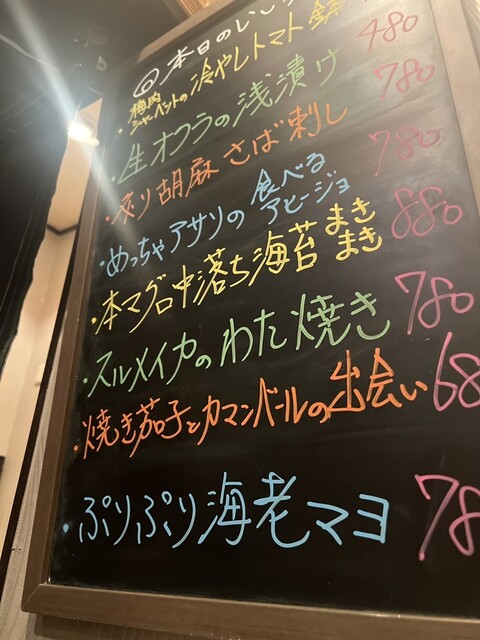 ◎本日の
・梅肉シャーベットの冷やしトマト
・生オクラの浅漬け 480
・炙り胡麻さば刺し 780
・めっちゃアサリの食べるアヒージョ 780
・本マグロ中落ち海苔まきまき 880
・スルメイカのわた焼き 780
・焼き茄子とカマンベールの出会い 68
・ぷりぷり海老マヨ 78